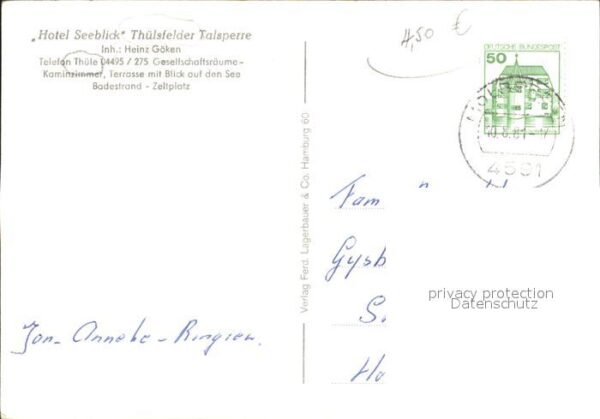 „Hotel Seeblick" Thülsfelder Talsperre
Inh.: Heinz Göken
Telefon Thüle 04495 / 275 Gesellschaftsräume -
Kaminzimmer, Terrasse mit Blick auf den See
Badestrand - Zeltplatz
4,50 €
DEUTSCHE BUNDESPOST
50
10.8.81-17
4501
Verlag Ferd. Lagerbauer & Co. Hamburg 60
Fam
Gysb
S.
Ha
privacy protection
Datenschutz
Jon-